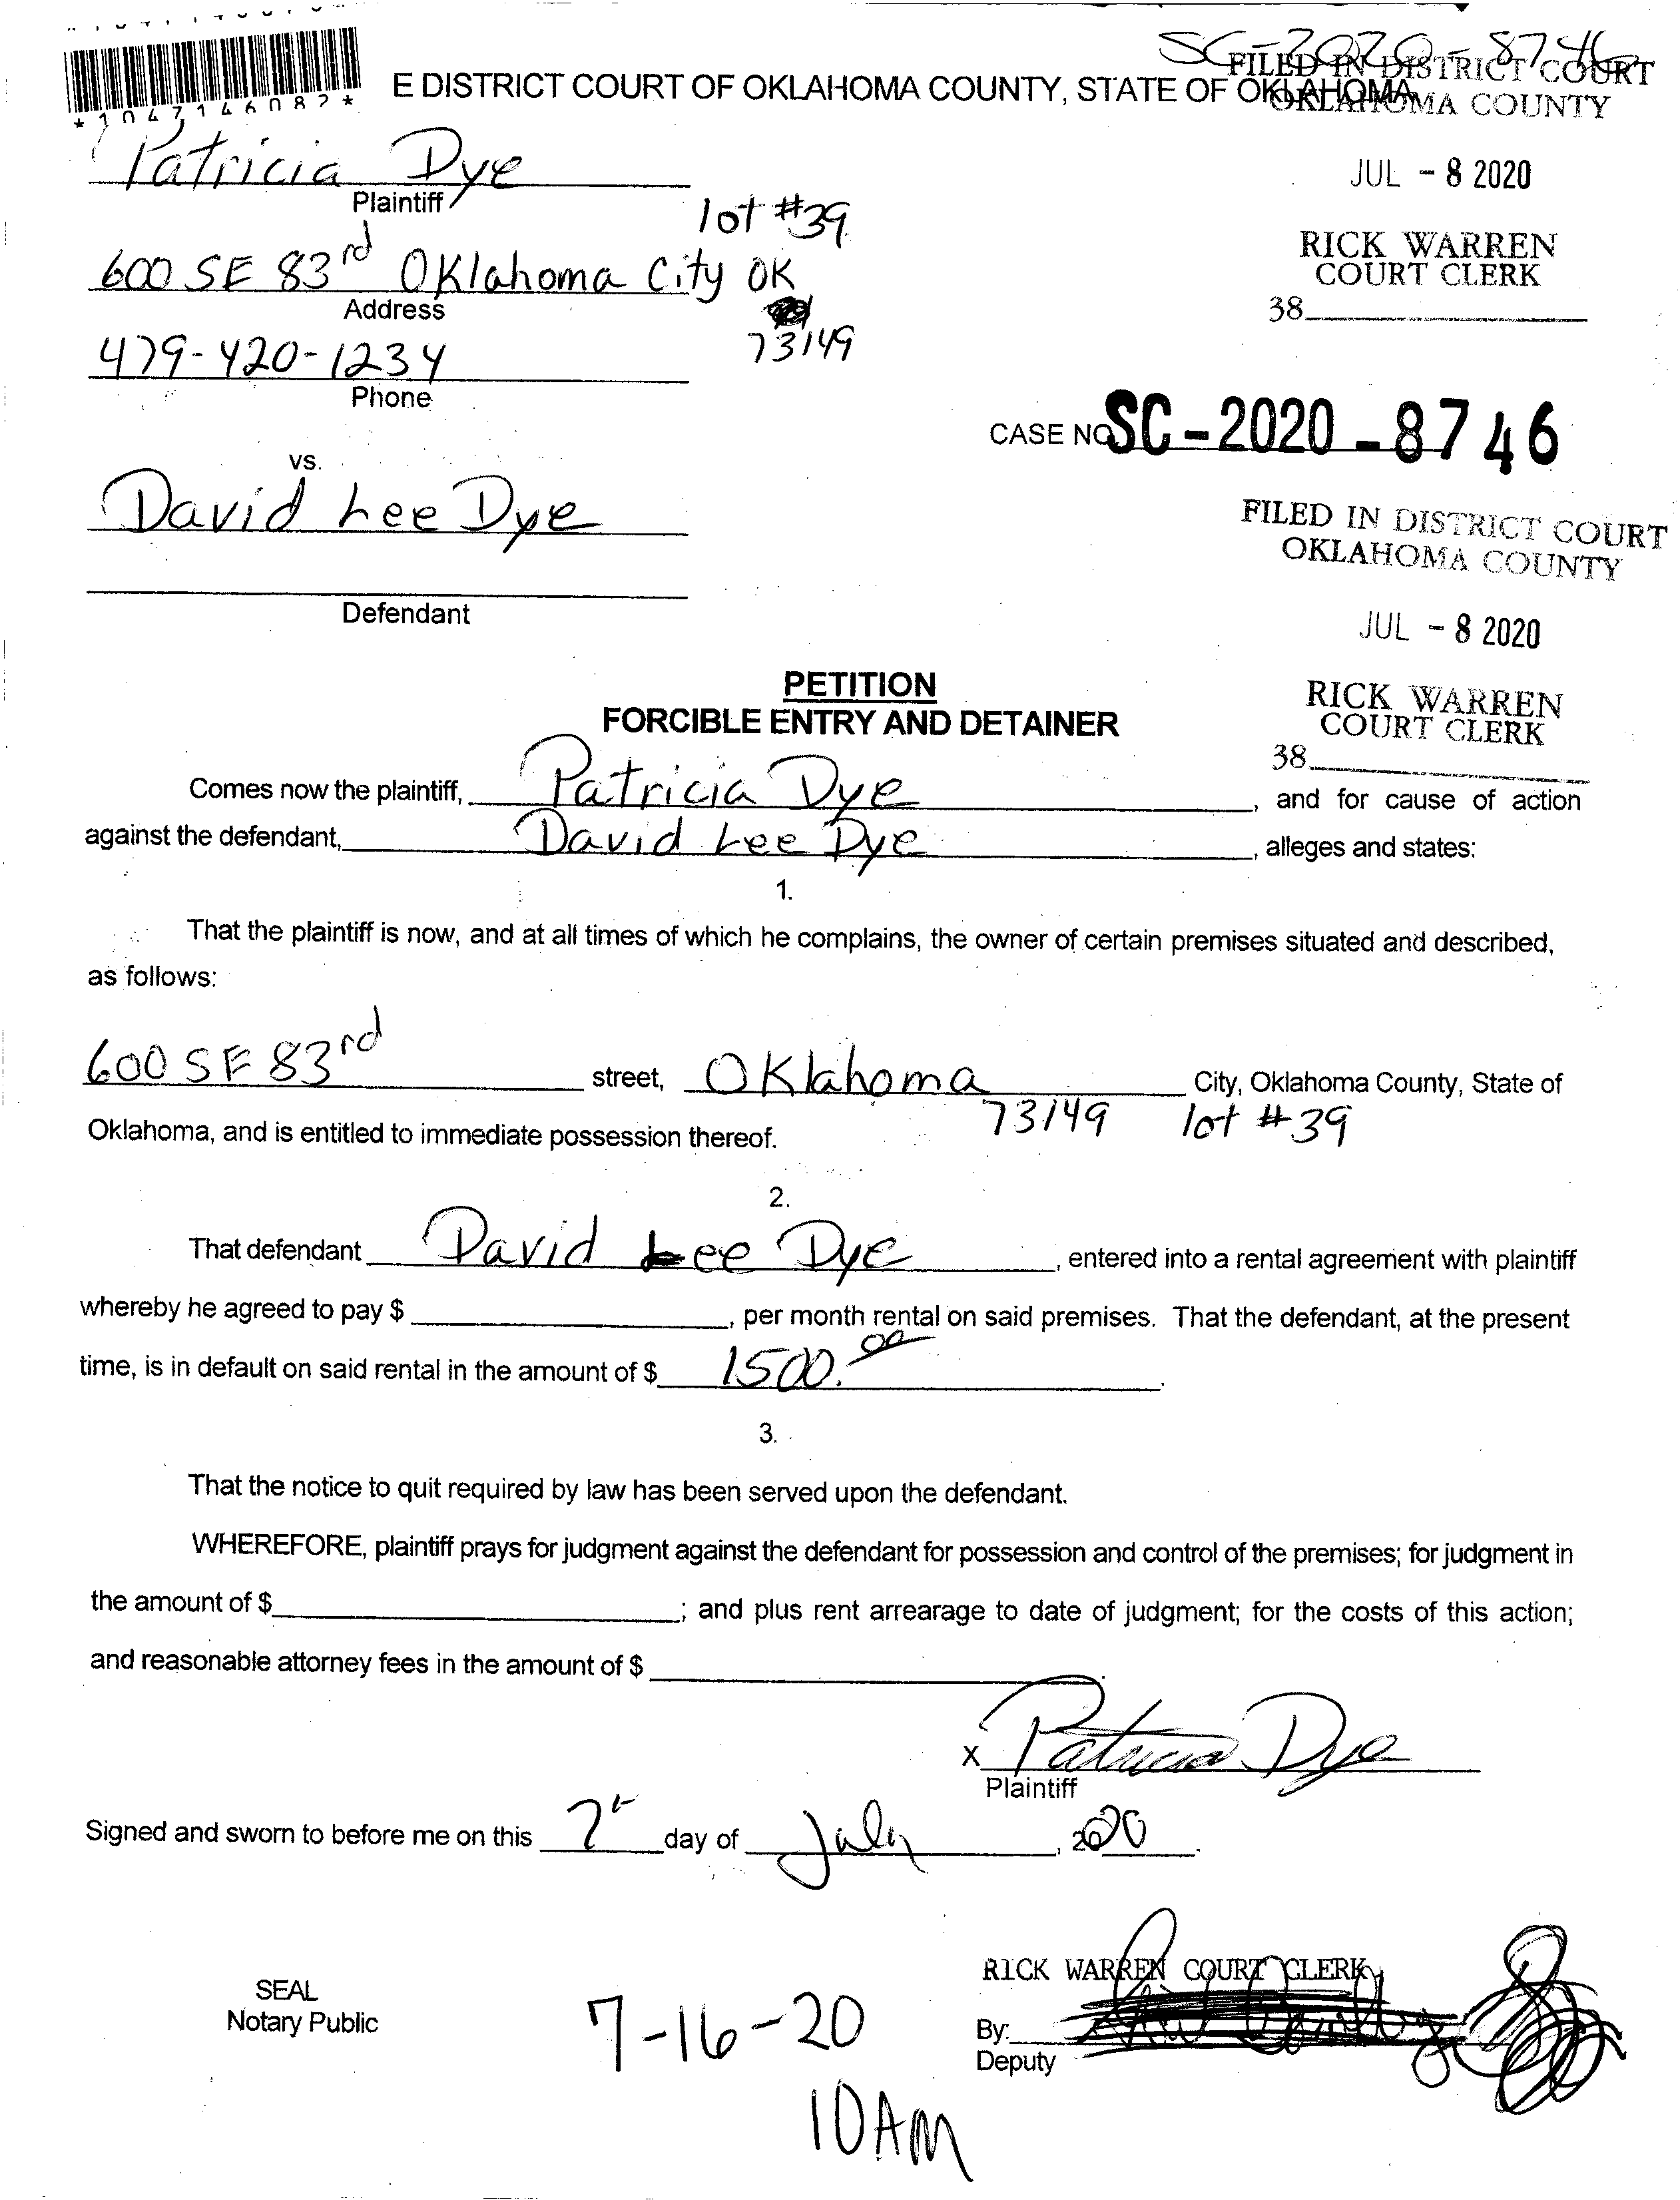 SC-2020-8746
FILED IN DISTRICT COURT
OKLAHOMA COUNTY
*1047146082*
E DISTRICT COURT OF OKLAHOMA COUNTY, STATE OF OKLAHOMA
Patricia Dye
Plaintiff
JUL - 8 2020
lot #39
RICK WARREN
COURT CLERK
600 SE 83rd Oklahoma City OK
Address
38
73149
479-420-1234
Phone
CASE NO SC-2020-8746
vs.
David Lee Dye
FILED IN DISTRICT COURT
OKLAHOMA COUNTY
Defendant
JUL - 8 2020
PETITION
FORCIBLE ENTRY AND DETAINER
RICK WARREN
COURT CLERK
38
Comes now the plaintiff, Patricia Dye, and for cause of action
against the defendant, David Lee Dye, alleges and states:
1.
That the plaintiff is now, and at all times of which he complains, the owner of certain premises situated and described,
as follows:
600 SE 83rd street, Oklahoma City, Oklahoma County, State of
73149 lot #39
Oklahoma, and is entitled to immediate possession thereof.
2.
That defendant David Lee Dye, entered into a rental agreement with plaintiff
whereby he agreed to pay $ , per month rental on said premises. That the defendant, at the present
time, is in default on said rental in the amount of $ 1500.00.
3.
That the notice to quit required by law has been served upon the defendant.
WHEREFORE, plaintiff prays for judgment against the defendant for possession and control of the premises; for judgment in
the amount of $ ; and plus rent arrearage to date of judgment; for the costs of this action;
and reasonable attorney fees in the amount of $ .
X Patricia Dye
Plaintiff
Signed and sworn to before me on this 7th day of July, 2020.
RICK WARREN COURT CLERK
SEAL
Notary Public
7-16-20
By:
Deputy
10AM